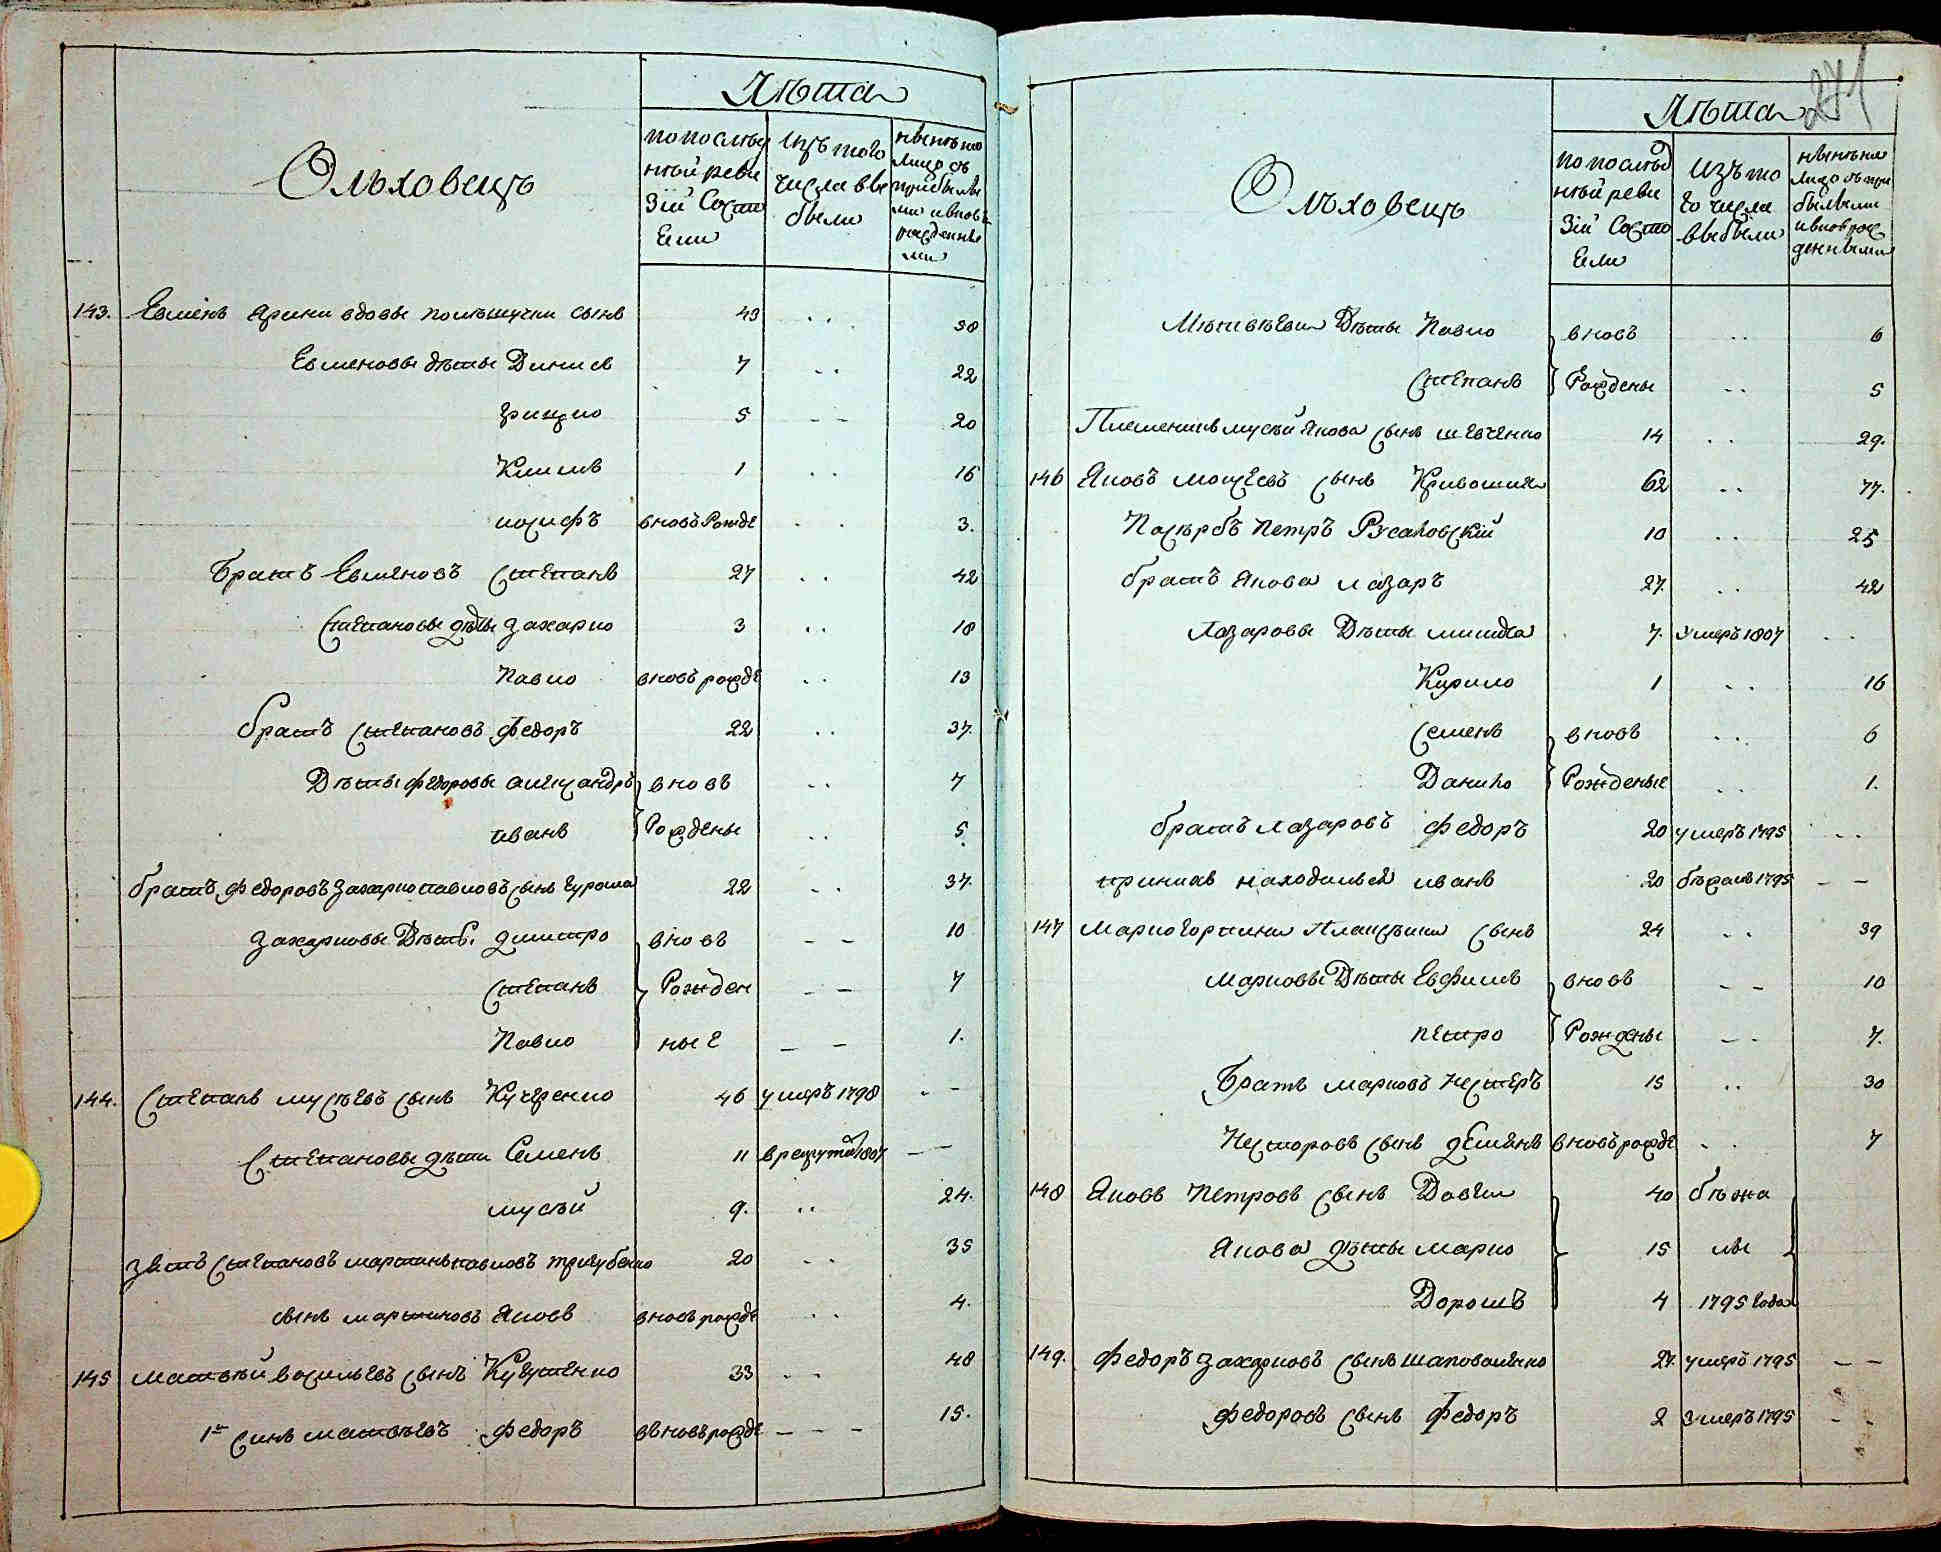 Лѣта
Ольховецъ
по послѣд
ней реви
зіи Состо
яли
Изъ того
числа вы
были
нынѣ на
лицо съ
прибылы
ми и вновь
рожденны
ми
143. Евменъ Ярини вдовы сынъ 43 . . 58
Евменовы дѣти Динисъ 7 . . 22
Грицко 5 — — 20
Климъ 1 . . 16
иосифъ вновь Рожде . . 3.
Братъ Евменовъ Степанъ 27 . . 42
Степановы дѣти Захарко 3 . . 18
Павло вновь рожде . . 13
братъ Степановъ Федоръ 22 . . 37.
Дѣти Федоровы александръ вновь . . 7
иванъ Рождены . . 5.
братъ Федоровъ Захарко павловъ сынъ 22 . . 37.
Захарковы Дѣти дмитро вновь — — 10
Степанъ Рожден — — 7
Павло ные — — 1.
144. Степанъ мусѣевъ сынъ Кучеренко 46 умеръ 1798 . —
Степановы дѣти Семенъ 11 в рекруты 1807 — —
мусѣй 9. . . 24.
зять Степановъ мартинъ павловъ тригубенко 20 . . 35
сынъ мартиновъ Яковъ вновь рожде . . 4.
145 матвѣй васильевъ сынъ 33 . . 48
1й синъ матвѣевъ Федоръ вновь рожде — — — 15.
271
Лѣта
Ольховецъ
по послѣд
ней реви
зіи Состо
яли
Изъ то
го числа
выбыли
нынѣ на
лицо съ при
былыми
и вновь рож
денными
Матвѣеви Дѣти Павло вновь . . 6
Степанъ Рождены . . 5
Племеникъ мусѣй Якова сынъ шевченко 14 . . 29.
146 Яковъ мойсеевъ сынъ Кривошия 62 . . 77.
Пасѣрбъ Петръ Русаловскій 10 . . 25
братъ Якова лазаръ 27. . . 42
Лазаровы Дѣти 7. умеръ 1807 . .
Кирило 1 . . 16
Семенъ вновь . . 6
Данило Рожденые . . 1.
братъ лазаровъ Федоръ 20 умеръ 1795 . .
иванъ 20 бѣжалъ 1795 — —
147 Марко сынъ 24 . . 39
Марковы Дѣти Евфимъ вновь — — 10
петро Рождены — . 7.
Братъ марковъ Нестеръ 15 . . 30
Несторовъ сынъ демянъ вновь рожде . . 7
148 Яковъ Петровъ сынъ 40 бѣжа
Якова дѣти марко 15 лы
Дорошъ 4 1795 года
149. Федоръ Захарковъ сынъ шаповаленко 27. умеръ 1795 — —
Федоровъ сынъ Федоръ 2 умеръ 1795 — .